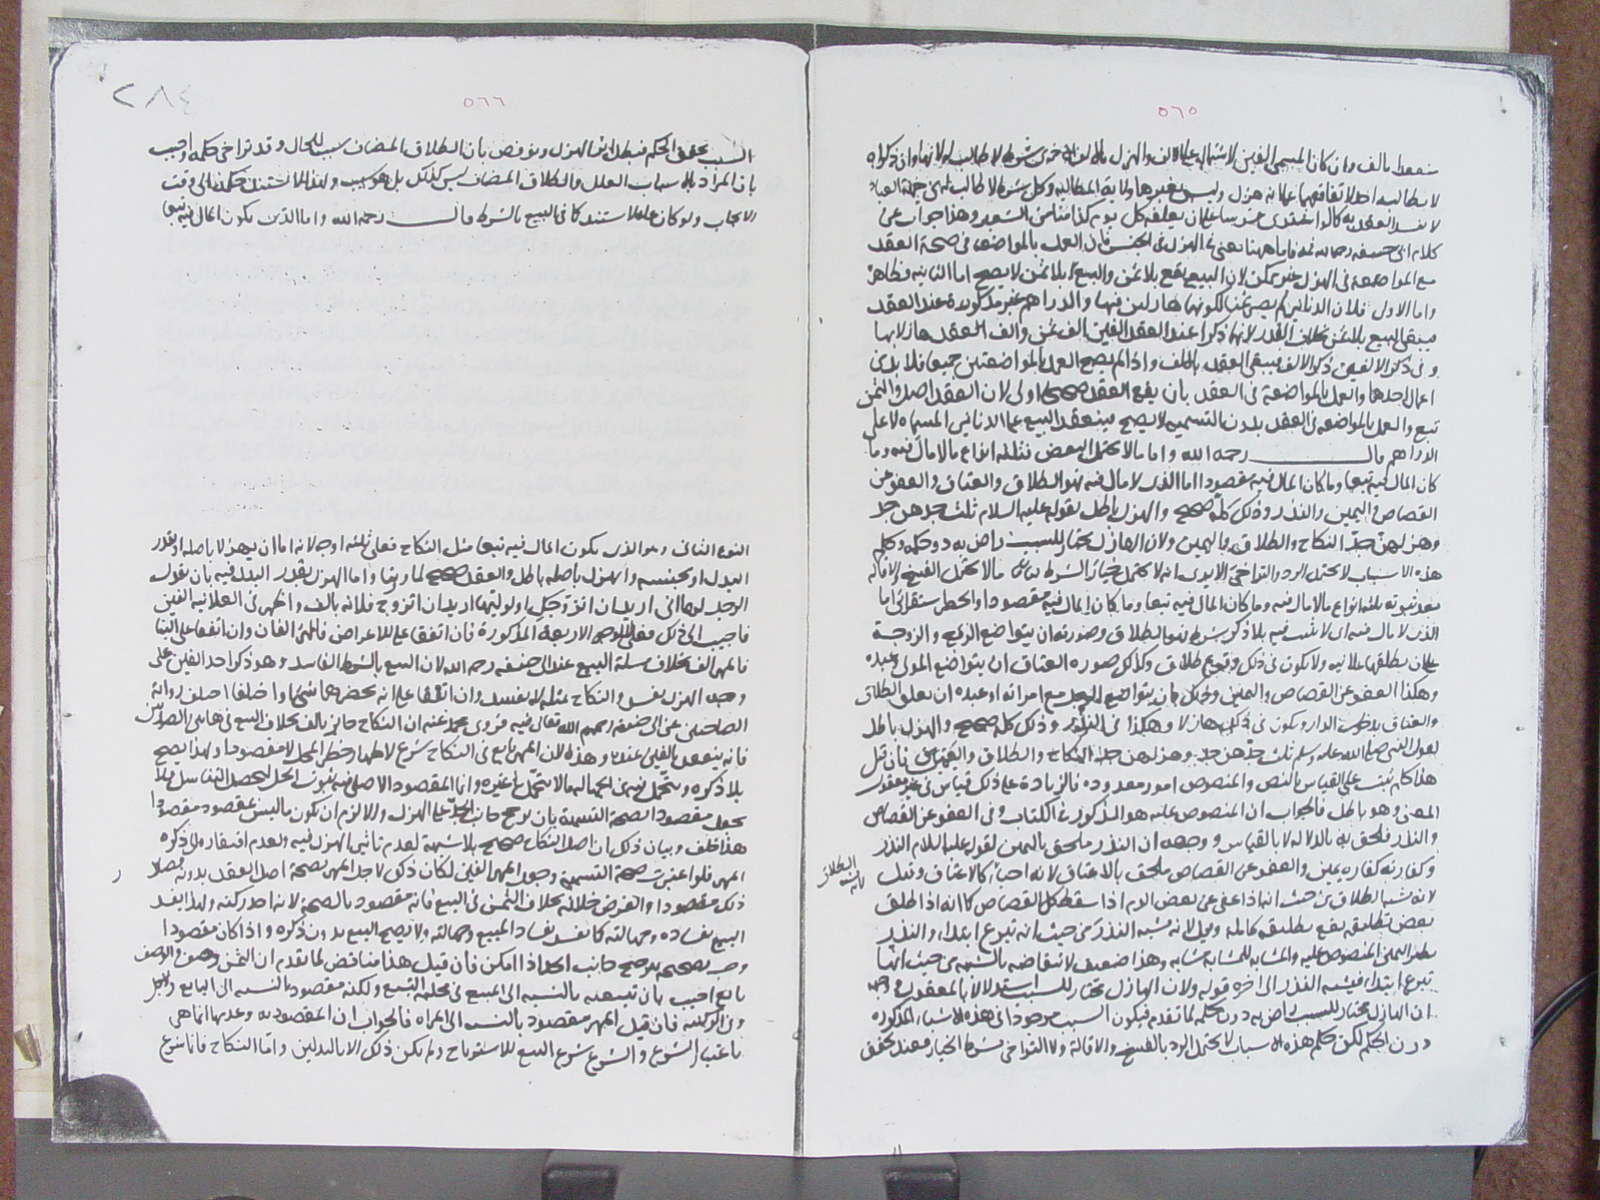 ٥٦٥
كلام ابي حنيفة رحمه الله فاما ههنا يعني الهزل في الجنس فان العمل بالمواضعة في صحة العقد
مع المواضعة في الهزل غير ممكن لان البيع يقع بلا ثمن والبيع بلا ثمن لا يصح اما الثانية فظاهرة
واما الاول فلان الدنانير لم يصر ثمنا لكونهما هازلين فيها والدراهم غير مذكورة عند العقد
فيبقى البيع بلا ثمن بخلاف القدر لانهما ذكرا عند العقد الفين الف ثمن والف العقد هازلا بها
وفي ذكر الالفين ذكر الالف فيبقى العقد بالالف واذا لم يصح العمل بالمواضعتين جميعا فلا بد من
اعمال احدهما والعمل بالمواضعة في العقد بان يقع العقد صحيحا اولى لان العقد اصل والثمن
تبع والعمل بالمواضعة في العقد بدون التسمية لا يصح فينعقد البيع على الدنانير المسماة لا على
الدراهم قال رحمه الله واما ما لا يحتمل النقض فثلثة انواع ما لا مال فيه وما
كان المال فيه تبعا وما كان المال فيه مقصودا اما الذي لا مال فيه فهو الطلاق والعتاق والعفو عن
القصاص واليمين والنذر وذلك كله صحيح والهزل باطل لقوله عليه السلام ثلث جدهن جد
وهزلهن جد النكاح والطلاق واليمين ولان الهازل مختار للسبب راض به دون حكمه وحكم
هذه الاسباب لا يحتمل الرد والتراخي الا يرى انه لا يحتمل خيار الشرط ما لا يحتمل الفسخ والاقالة
بعد ثبوته ثلثة انواع ما لا مال فيه وما كان المال فيه تبعا وما كان المال فيه مقصودا والحصر ستقرائي اما
الذي لا مال فيه اي لا يثبت فيه بلا ذكر شرط فهو الطلاق وصورته ان يتواضع الزوج والزوجة
على ان يطلقها علانية ولا يكون في ذلك وقوع طلاق وكذلك صورة العتاق ان يتواضع المولى وعبده
وهكذا العفو عن القصاص واليمين وذلك بان يتواضع الرجل مع امراته او عبده ان يعلق الطلاق
والعتاق بدخول الدار ويكون في ذلك هازلا وهكذا في النذر وذلك كله صحيح والهزل باطل
لقول النبي صلى الله عليه وسلم ثلث جدهن جد وهزلهن جد النكاح والطلاق واليمين فان قيل
هذا كلام يثبت على القياس بالنص والمنصوص امور معدودة فالزيادة على ذلك قياس في غير معقول
المعنى وهو باطل فالجواب ان المنصوص عليه هو المذكور في الكتاب وفي العفو عن القصاص
والنذر فلحق به بالدلالة لا بالقياس ووجهه ان النذر ملحق باليمين لقوله عليه السلام النذر
وكفارته كفارة يمين والعفو عن القصاص ملحق بالاعتاق لانه احياء كالاعتاق وقيل
لانه شبه الطلاق من حيث انه اذا عفي عن بعض الدم اذا سقط كل القصاص كما انه اذا طلق
بعض تطليقة يقع تطليقة كاملة وقيل لانه شبه النذر من حيث انه تبرع ابتداء والنذر
نظير اليمين المنصوص عليه والمشابه للمشابه مشابه وهذا ضعيف لانتقاضه بالشبه من حيث انها
تبرع ابتداء فيشبه النذر الى اخره قوله ولان الهازل مختار للسبب استدلال بالمعقول وجهه
ان الهازل مختار للسبب راض به دون حكمه لما تقدم فيكون السبب موجودا في هذه الاشياء المذكورة
دون الحكم لكن حكم هذه الاسباب لا يحتمل الرد بالفسخ والاقالة ولا التراخي بشرط الخيار فعند تحقق
الطلاق
٥٦٦
٢٨٤
السبب يتحقق الحكم فيبطل اثر الهزل ونوقض بان الطلاق المضاف سبب للحال وقد تراخى حكمه واجيب
بان المراد بالاسباب العلل والطلاق المضاف ليس كذلك بل هو سبب ولهذا لا يستند حكمه الى وقت
الايجاب ولو كان علة لاستند كما في البيع بالشرط قال رحمه الله واما الذي يكون المال فيه تبعا
النوع الثاني وهو الذي يكون المال فيه تبعا مثل النكاح فعلى ثلثة اوجه لانه اما ان يهزلا باصله او بقدر
البدل او بجنسه والهزل باصله باطل والعقد صحيح لما روينا واما الهزل بقدر البدل فيه بان يقول
الرجل لها اني اريد ان اتزوجك او لوليها اريد ان اتزوج فلانة بالف واظهر في العلانية الفين
فاجيب الى ذلك فعلى الاوجه الاربعة المذكورة فان اتفقا على الاعراض فالمهر الفان وان اتفقا على البنا
فالمهر الف بخلاف مسئلة البيع عند ابي حنيفة رحمه الله لان البيع بالشرط الفاسد وهو ذكر احد الفين على
وجه الهزل يفسد والنكاح بمثله لا يفسد وان اتفقا على انه لم يحضرهما شيء او اختلفا اختلف رواية
الصاحبين عن ابي حنيفة رحمهم الله تعالى فيه فروى محمد عنه ان النكاح جائز بالف بخلاف البيع في هاتين الصورتين
فانه ينعقد بالفين عنده وهذا لان المهر تابع في النكاح شرع لاظهار خطر المحل لا مقصودا ولهذا يصح
بلا ذكره ويتحمل فيه من الجهالة ما لا يتحمل في غيره وانما المقصود الاصلي فيه ثبوت الحل ليحصل التناسل فلا
يجعل مقصودا لصحة التسمية بان يرجح جانب الجد على الهزل والا لزم ان يكون ما ليس بمقصود مقصودا
هذا خلف وبيان ذلك ان اصل النكاح صحيح بلا شبهة لعدم تاثير الهزل فيه ولعدم افتقاره الى ذكره
المهر فلو اعتبرت صحة التسمية وجعل المهر الفين لكان ذكر لاجل المهر بصحة اصل العقد بدونه فصار
ذلك مقصودا والفرض خلافه بخلاف الثمن في البيع فانه مقصود بالصحة لانه احد ركنيه ولهذا يفسد
البيع بفساده وجهالته كما يفسد بفساد المبيع وجهالته ولا يصح البيع بدون ذكره واذا كان مقصودا
وجب تصحيحه بترجيح جانب الجد اذا امكن فان قيل هذا مناقض لما تقدم ان الثمن وصف والوصف
تابع اجيب بان تبعيته بالنسبة الى المبيع في محلية البيع ولكنه مقصود بالنسبة الى البايع ولاجل
من الركنية فان قيل المهر مقصود بالنسبة الى المراة فالجواب ان المقصودية وعدمها انما هي
باعتبار الشرع والشرع شرع البيع للاسترباح ولم يكن ذلك الا بالبدلين واما النكاح فانما شرع